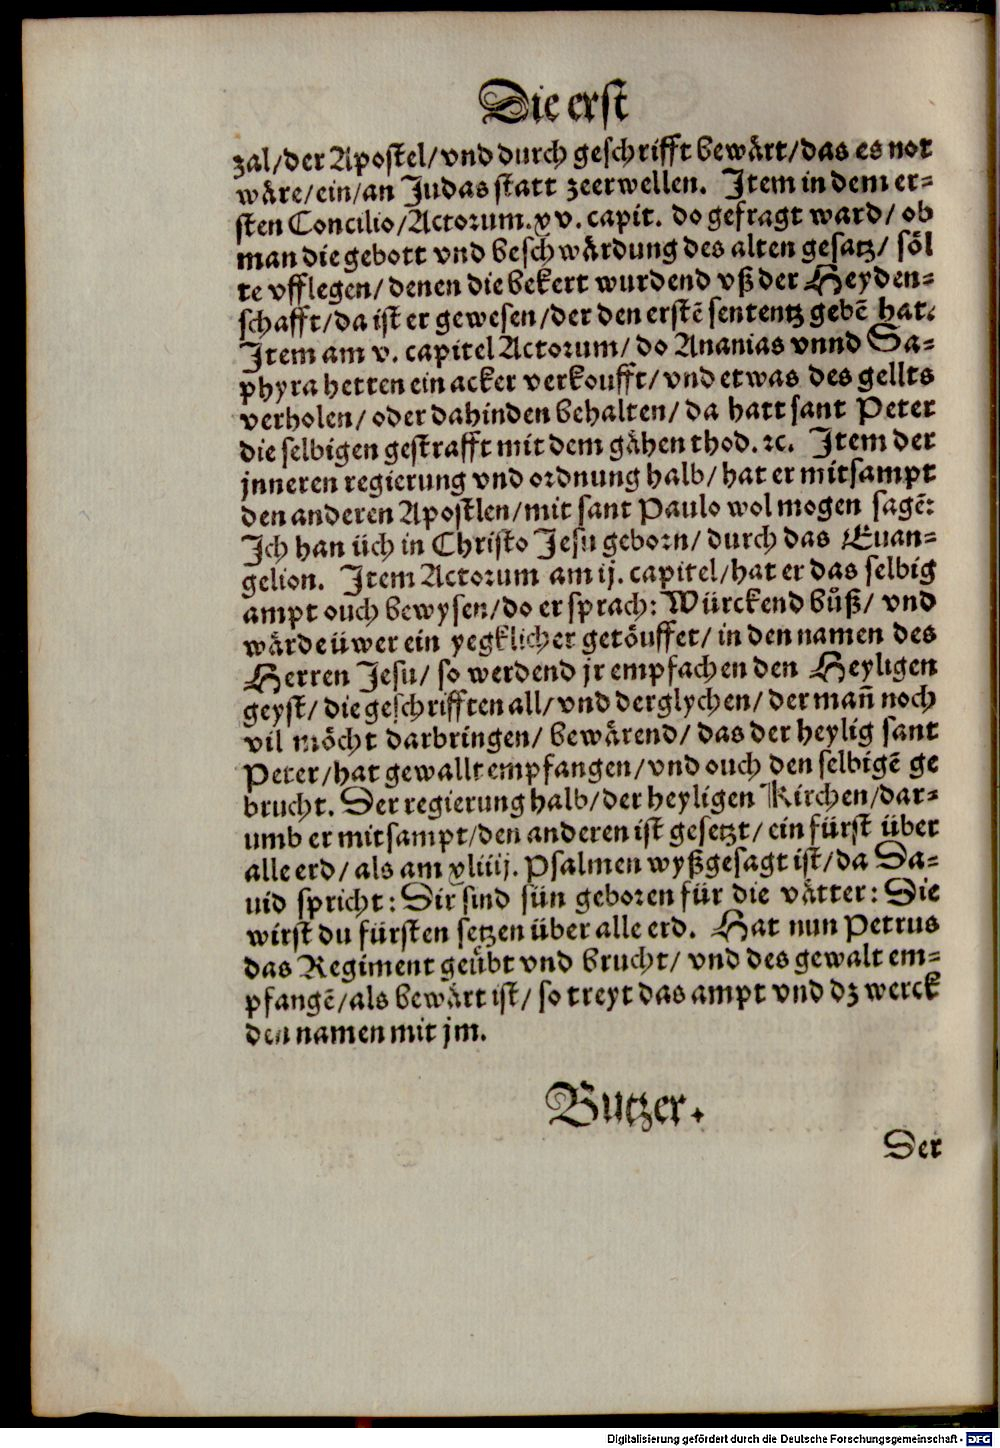 Die erst
zal/der Apostel/vnd durch geschrifft bewårt/das es not
wåre/ein/an Judas statt zeerwellen. Item in dem er-
sten Concilio/Actorum.xv. capit. do gefragt ward/ ob
man die gebott vnd beschwårdung des alten gesatz/ söl
te vfflegen/ denen die bekert wurdend vß der Heyden-
schafft/da ist er gewesen/der den erstē sententz gebē hat.
Item am v. capitel Actorum/ do Ananias vnnd Sa-
phyra hetten ein acker verkoufft/ vnd etwas des gellts
verholen/ oder dahinden behalten/ da hatt sant Peter
die selbigen gestrafft mit dem gåhen thod. ꝛc. Item der
jnneren regierung vnd ordnung halb/ hat er mitsampt
den anderen Apostlen/mit sant Paulo wol mogen sagē:
Ich han üch in Christo Jesu geborn/ durch das Euan-
gelion. Item Actorum am ij. capitel/hat er das selbig
ampt ouch bewysen/do er sprach: Würckend bůß/ vnd
wårde üwer ein yegklicher getöuffet/ in den namen des
Herren Jesu/ so werdend jr empfachen den Heyligen
geyst/ die geschrifften all/ vnd derglychen/ der mañ noch
vil möcht darbringen/ bewårend/ das der heylig sant
Peter/hat gewallt empfangen/vnd ouch den selbigē ge
brucht. Der regierung halb/der heyligen Kirchen/dar-
umb er mitsampt/den anderen ist gesetzt/ ein fürst über
alle erd/ als am xliiij. Psalmen wyßgesagt ist/ da Da-
uid spricht: Dir sind sün geboren für die våtter: Die
wirst du fürsten setzen über alle erd. Hat nun Petrus
das Regiment geübt vnd brucht/ vnd des gewalt em-
pfangē/als bewårt ist/ so treyt das ampt vnd dz werck
den namen mit jm.
Butzer.
Der
Digitalisierung gefördert durch die Deutsche Forschungsgemeinschaft - DFG